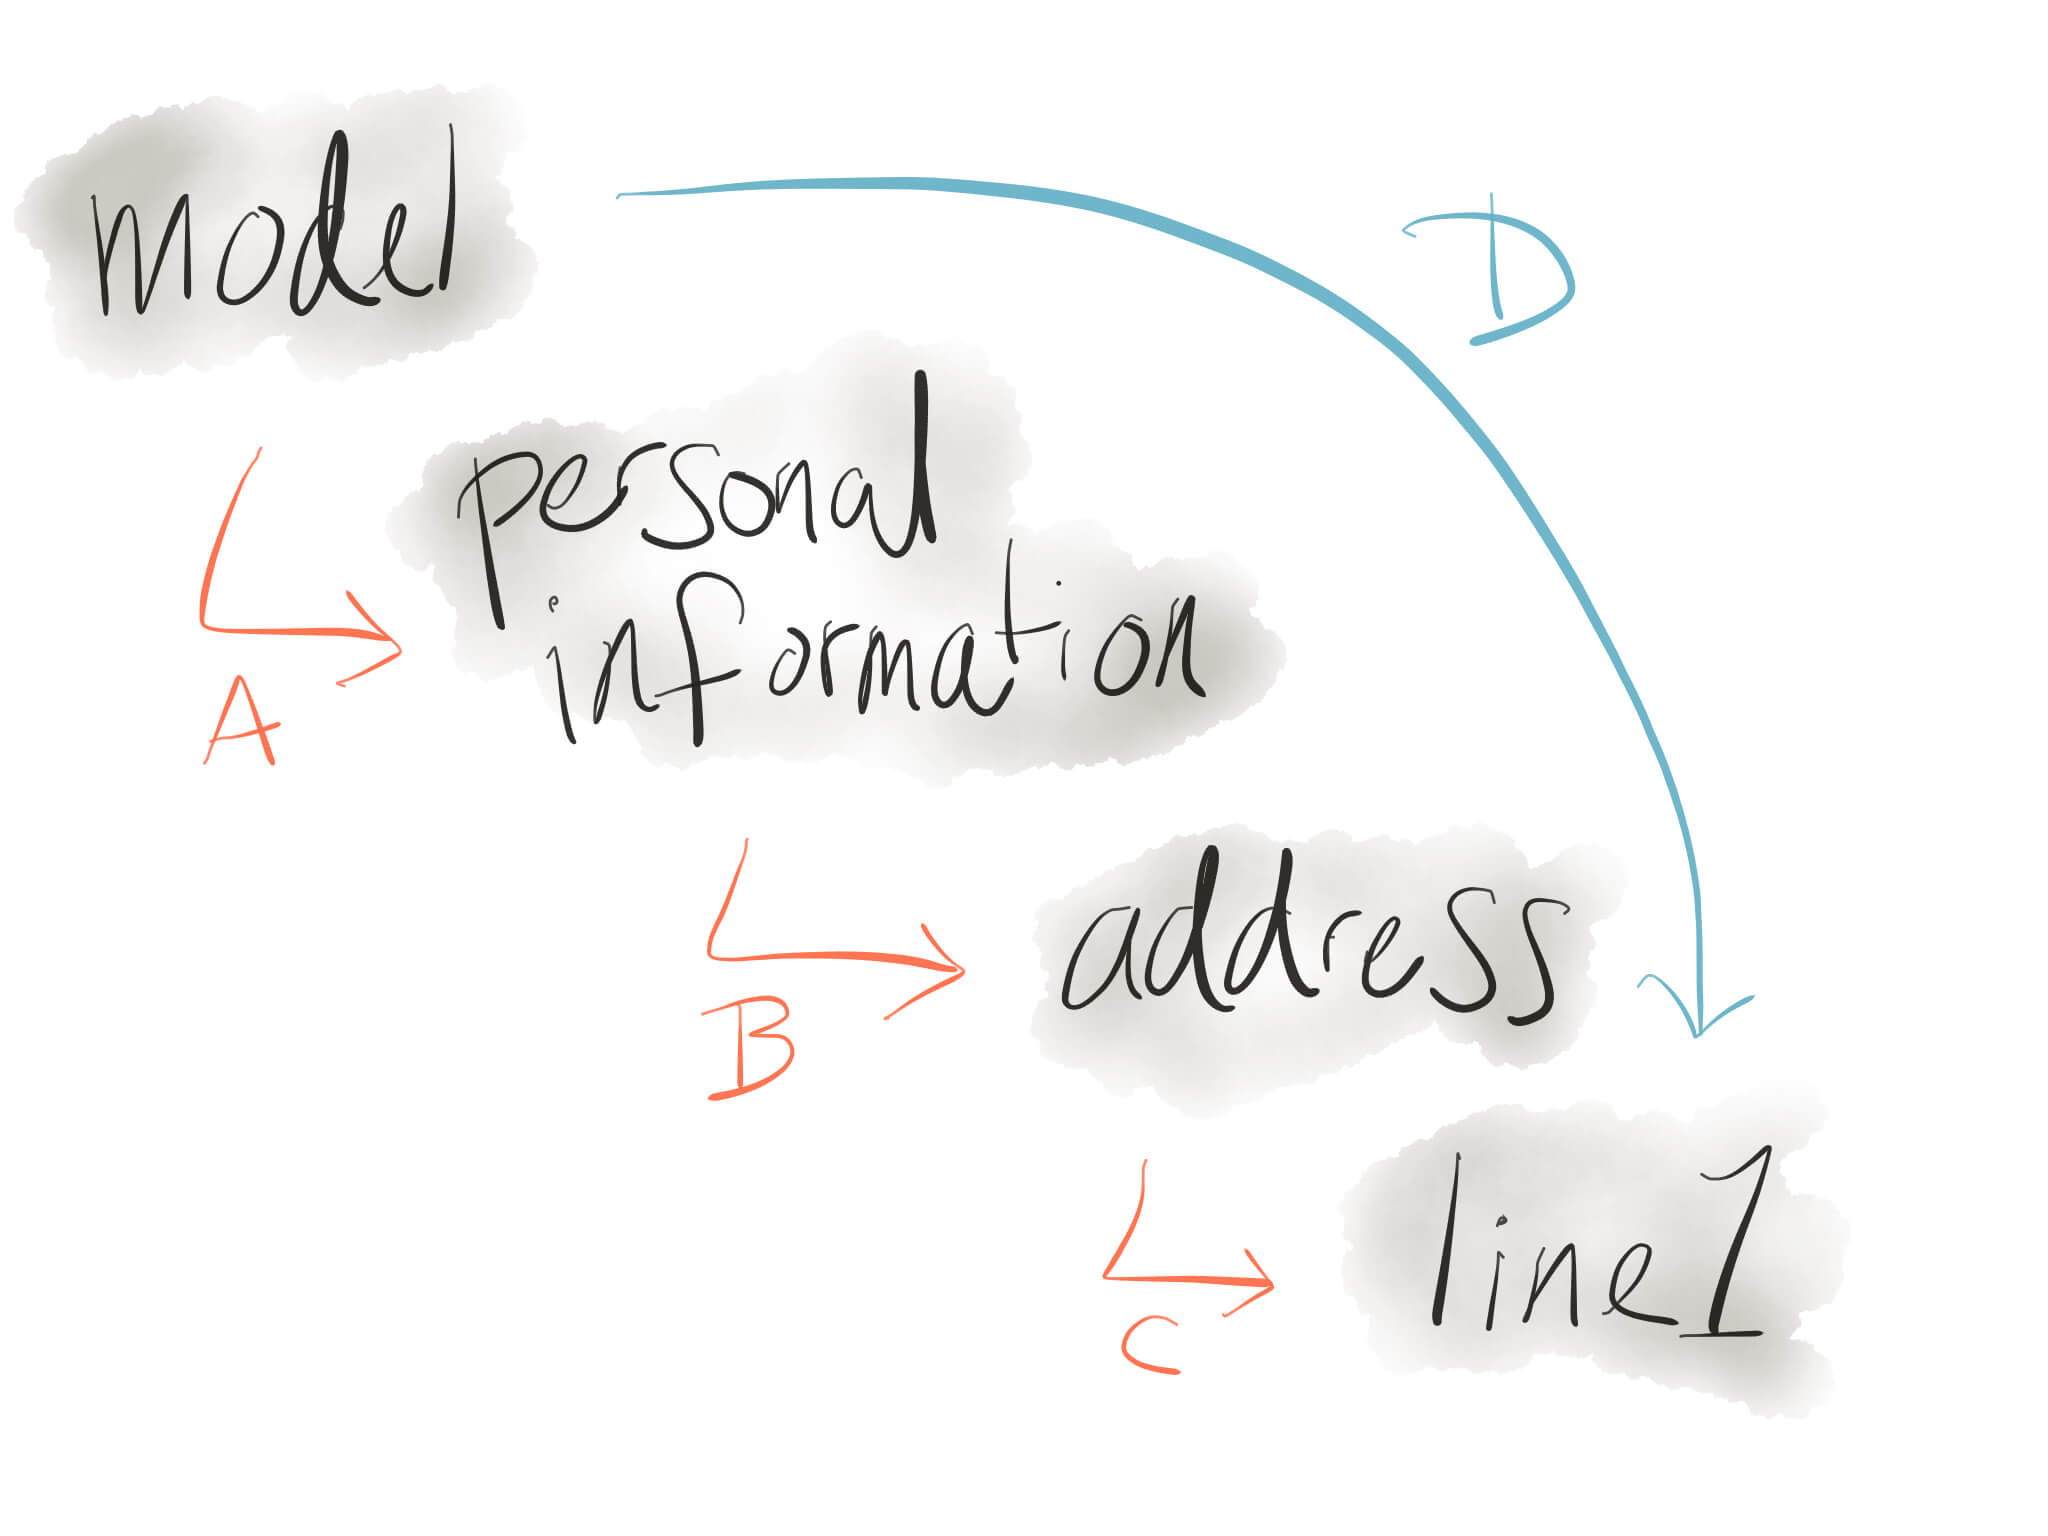 model
D
personal
information
A
address
B
line1
C